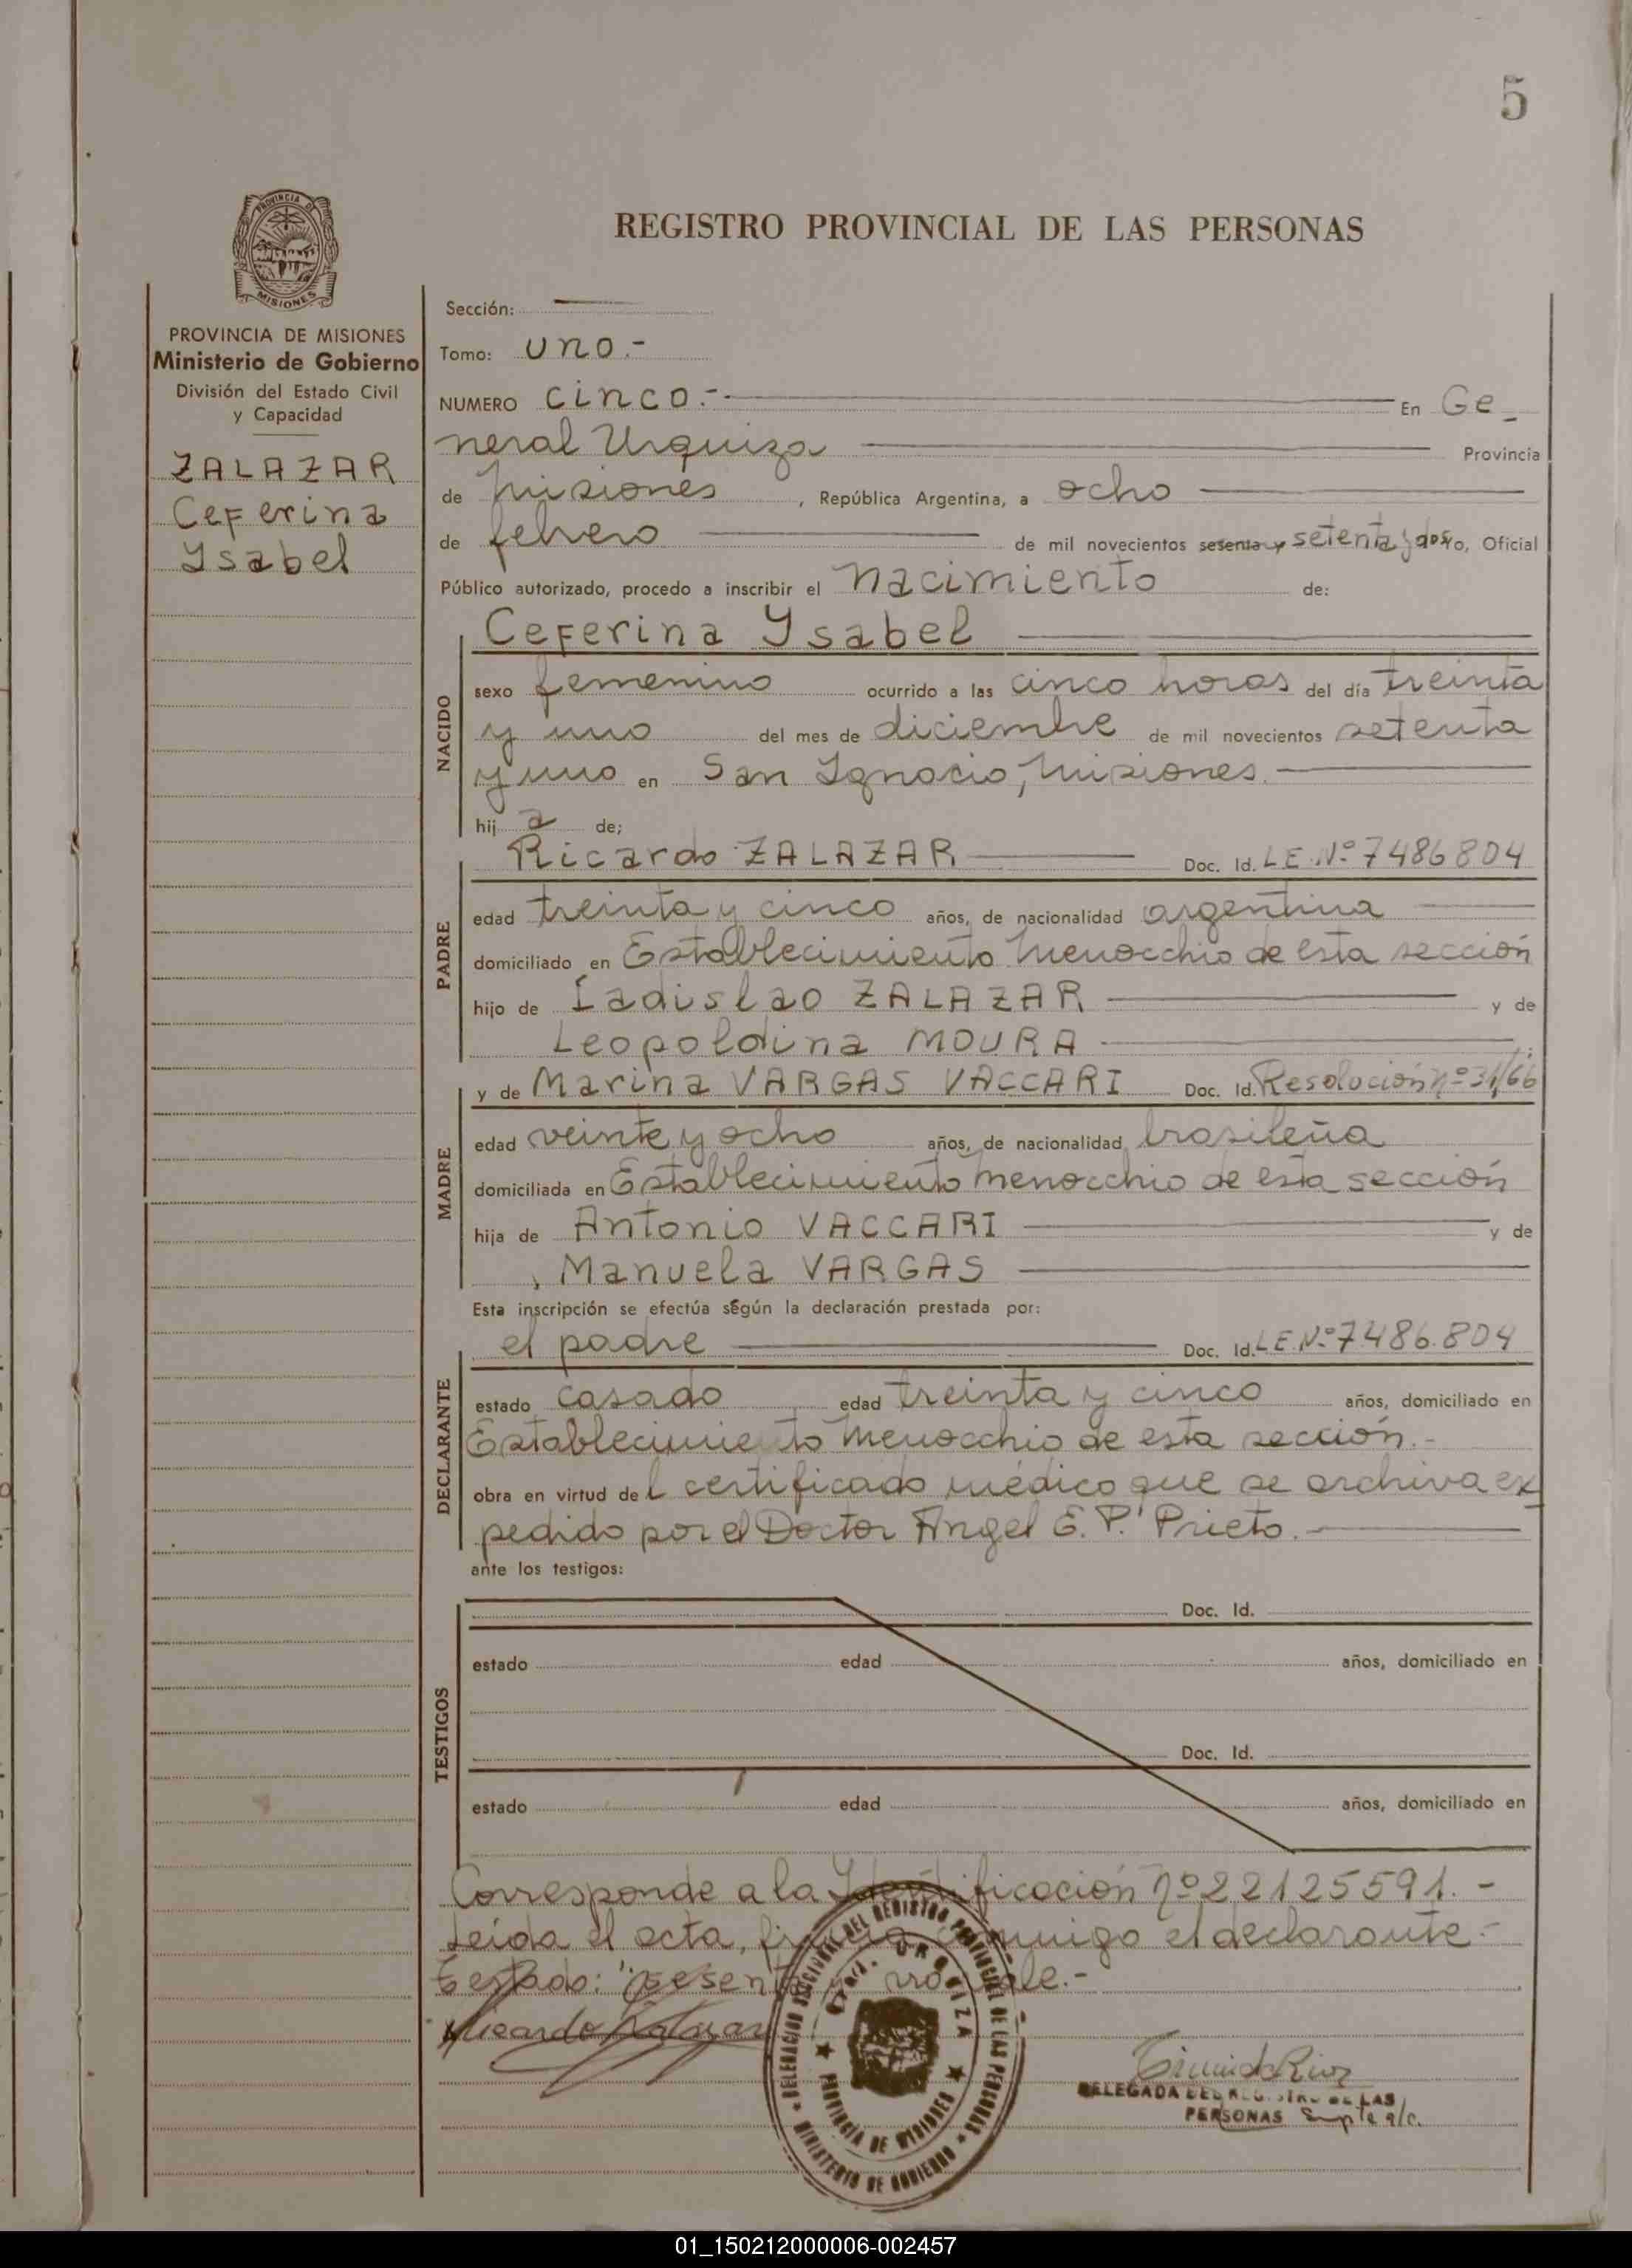 5
PROVINCIA DE
MISIONES
REGISTRO PROVINCIAL DE LAS PERSONAS
PROVINCIA DE MISIONES
Ministerio de Gobierno
División del Estado Civil
y Capacidad
ZALAZAR
Ceferina
Ysabel
Sección:
Tomo: uno.-
NUMERO cinco.- En Ge_
neral Urquiza Provincia
de Misiones, República Argentina, a ocho
de febrero de mil novecientos sesenta y setenta y dos yo, Oficial
Público autorizado, procedo a inscribir el nacimiento de:
NACIDO
Ceferina Ysabel
sexo femenino ocurrido a las cinco horas del día treinta
y uno del mes de diciembre de mil novecientos setenta
y uno en San Ignacio, Misiones.
hij a de;
PADRE
Ricardo ZALAZAR Doc. Id. L.E. Nº 7486804
edad treinta y cinco años, de nacionalidad argentina
domiciliado en Establecimiento Menocchio de esta sección
hijo de Ladislao ZALAZAR y de
Leopoldina MOURA
MADRE
y de Marina VARGAS VACCARI Doc. Id. Resolución nº 31/66
edad veinte y ocho años, de nacionalidad brasileña
domiciliada en Establecimiento Menocchio de esta sección
hija de Antonio VACCARI y de
Manuela VARGAS
Esta inscripción se efectúa según la declaración prestada por:
DECLARANTE
el padre Doc. Id. L.E. Nº 7.486.804
estado casado edad treinta y cinco años, domiciliado en
Establecimiento Menocchio de esta sección.-
obra en virtud del certificado médico que se archiva ex
pedido por el Doctor Angel E. P. Prieto.
ante los testigos:
TESTIGOS
Doc. Id.
estado edad años, domiciliado en
Doc. Id.
estado edad años, domiciliado en
Corresponde a la Identificación nº 22125591.-
Leída el acta, firma conmigo el declarante.-
Testado: "sesenta" no vale.-
Ricardo Zalazar
DELEGACION SECCIONAL DEL REGISTRO PROVINCIAL DE LAS PERSONAS
Gral. URQUIZA
PROVINCIA DE MISIONES
MINISTERIO DE GOBIERNO
DELEGADA DEL REGISTRO DE LAS
PERSONAS Suple a/c.
01_150212000006-002457